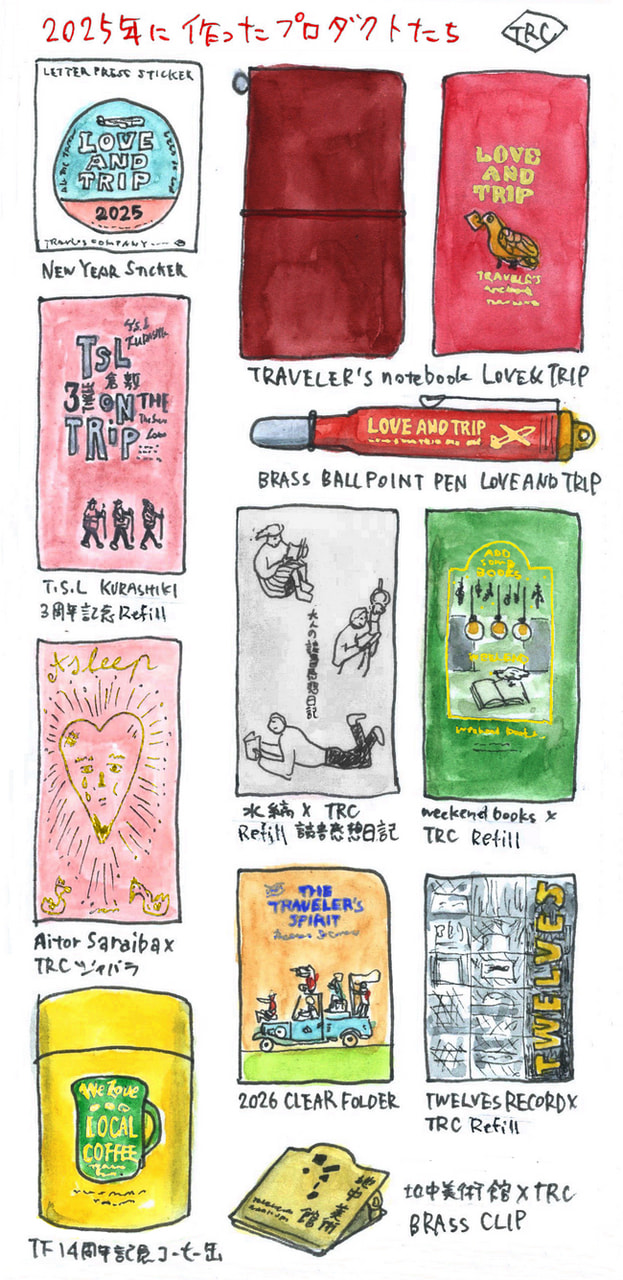 2025年に作ったプロダクトたち
TRC
LETTER PRESS STICKER
LOVE
AND
TRIP
2025
NEW YEAR STICKER
LOVE
AND
TRIP
TRAVELER'S
TRAVELER'S notebook LOVE & TRIP
TSL
倉敷
3
ON THE
TRIP
T.S.L KURASHIKI
3周年記念 Refill
LOVE AND TRIP
BRASS BALLPOINT PEN LOVE AND TRIP
大人の読書感想日記
水縞 X TRC
Refill 読書感想日記
ADD
SOME
BOOKS
weekend books
weekend books x
TRC Refill
asleep
Aitor Saraiba x
TRC ジャバラ
THE
TRAVELER'S
SPIRIT
2026 CLEAR FOLDER
TWELVES
TWELVES RECORD X
TRC Refill
We Love
LOCAL
COFFEE
TF14周年記念コーヒー缶
地中美術
館
地中美術館 X TRC
BRASS CLIP